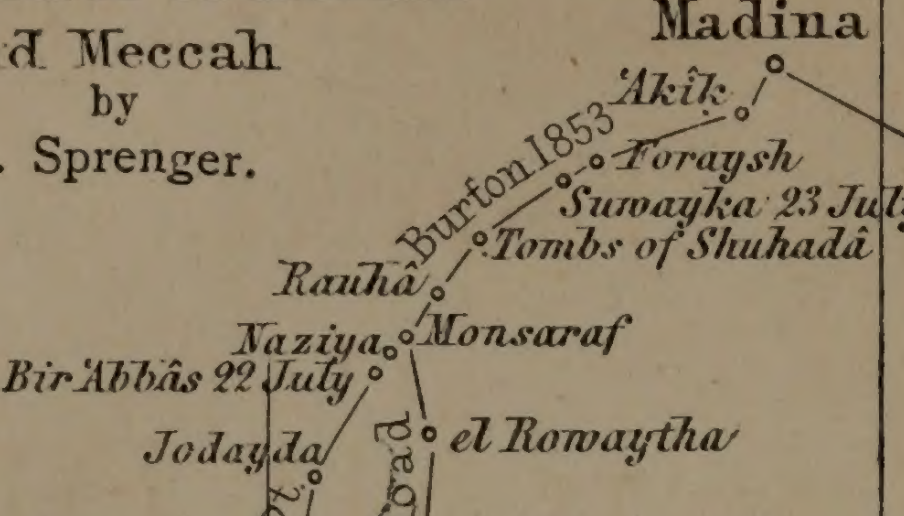 Madina
d Meccah
by
. Sprenger.
'Akîk
Burton 1853
Foraysh
Suwayka 23 July
Tombs of Shuhadâ
Rauhâ
Naziya
Monsaraf
Bir 'Abbâs 22 July
Jodayda
el Rowaytha
oad